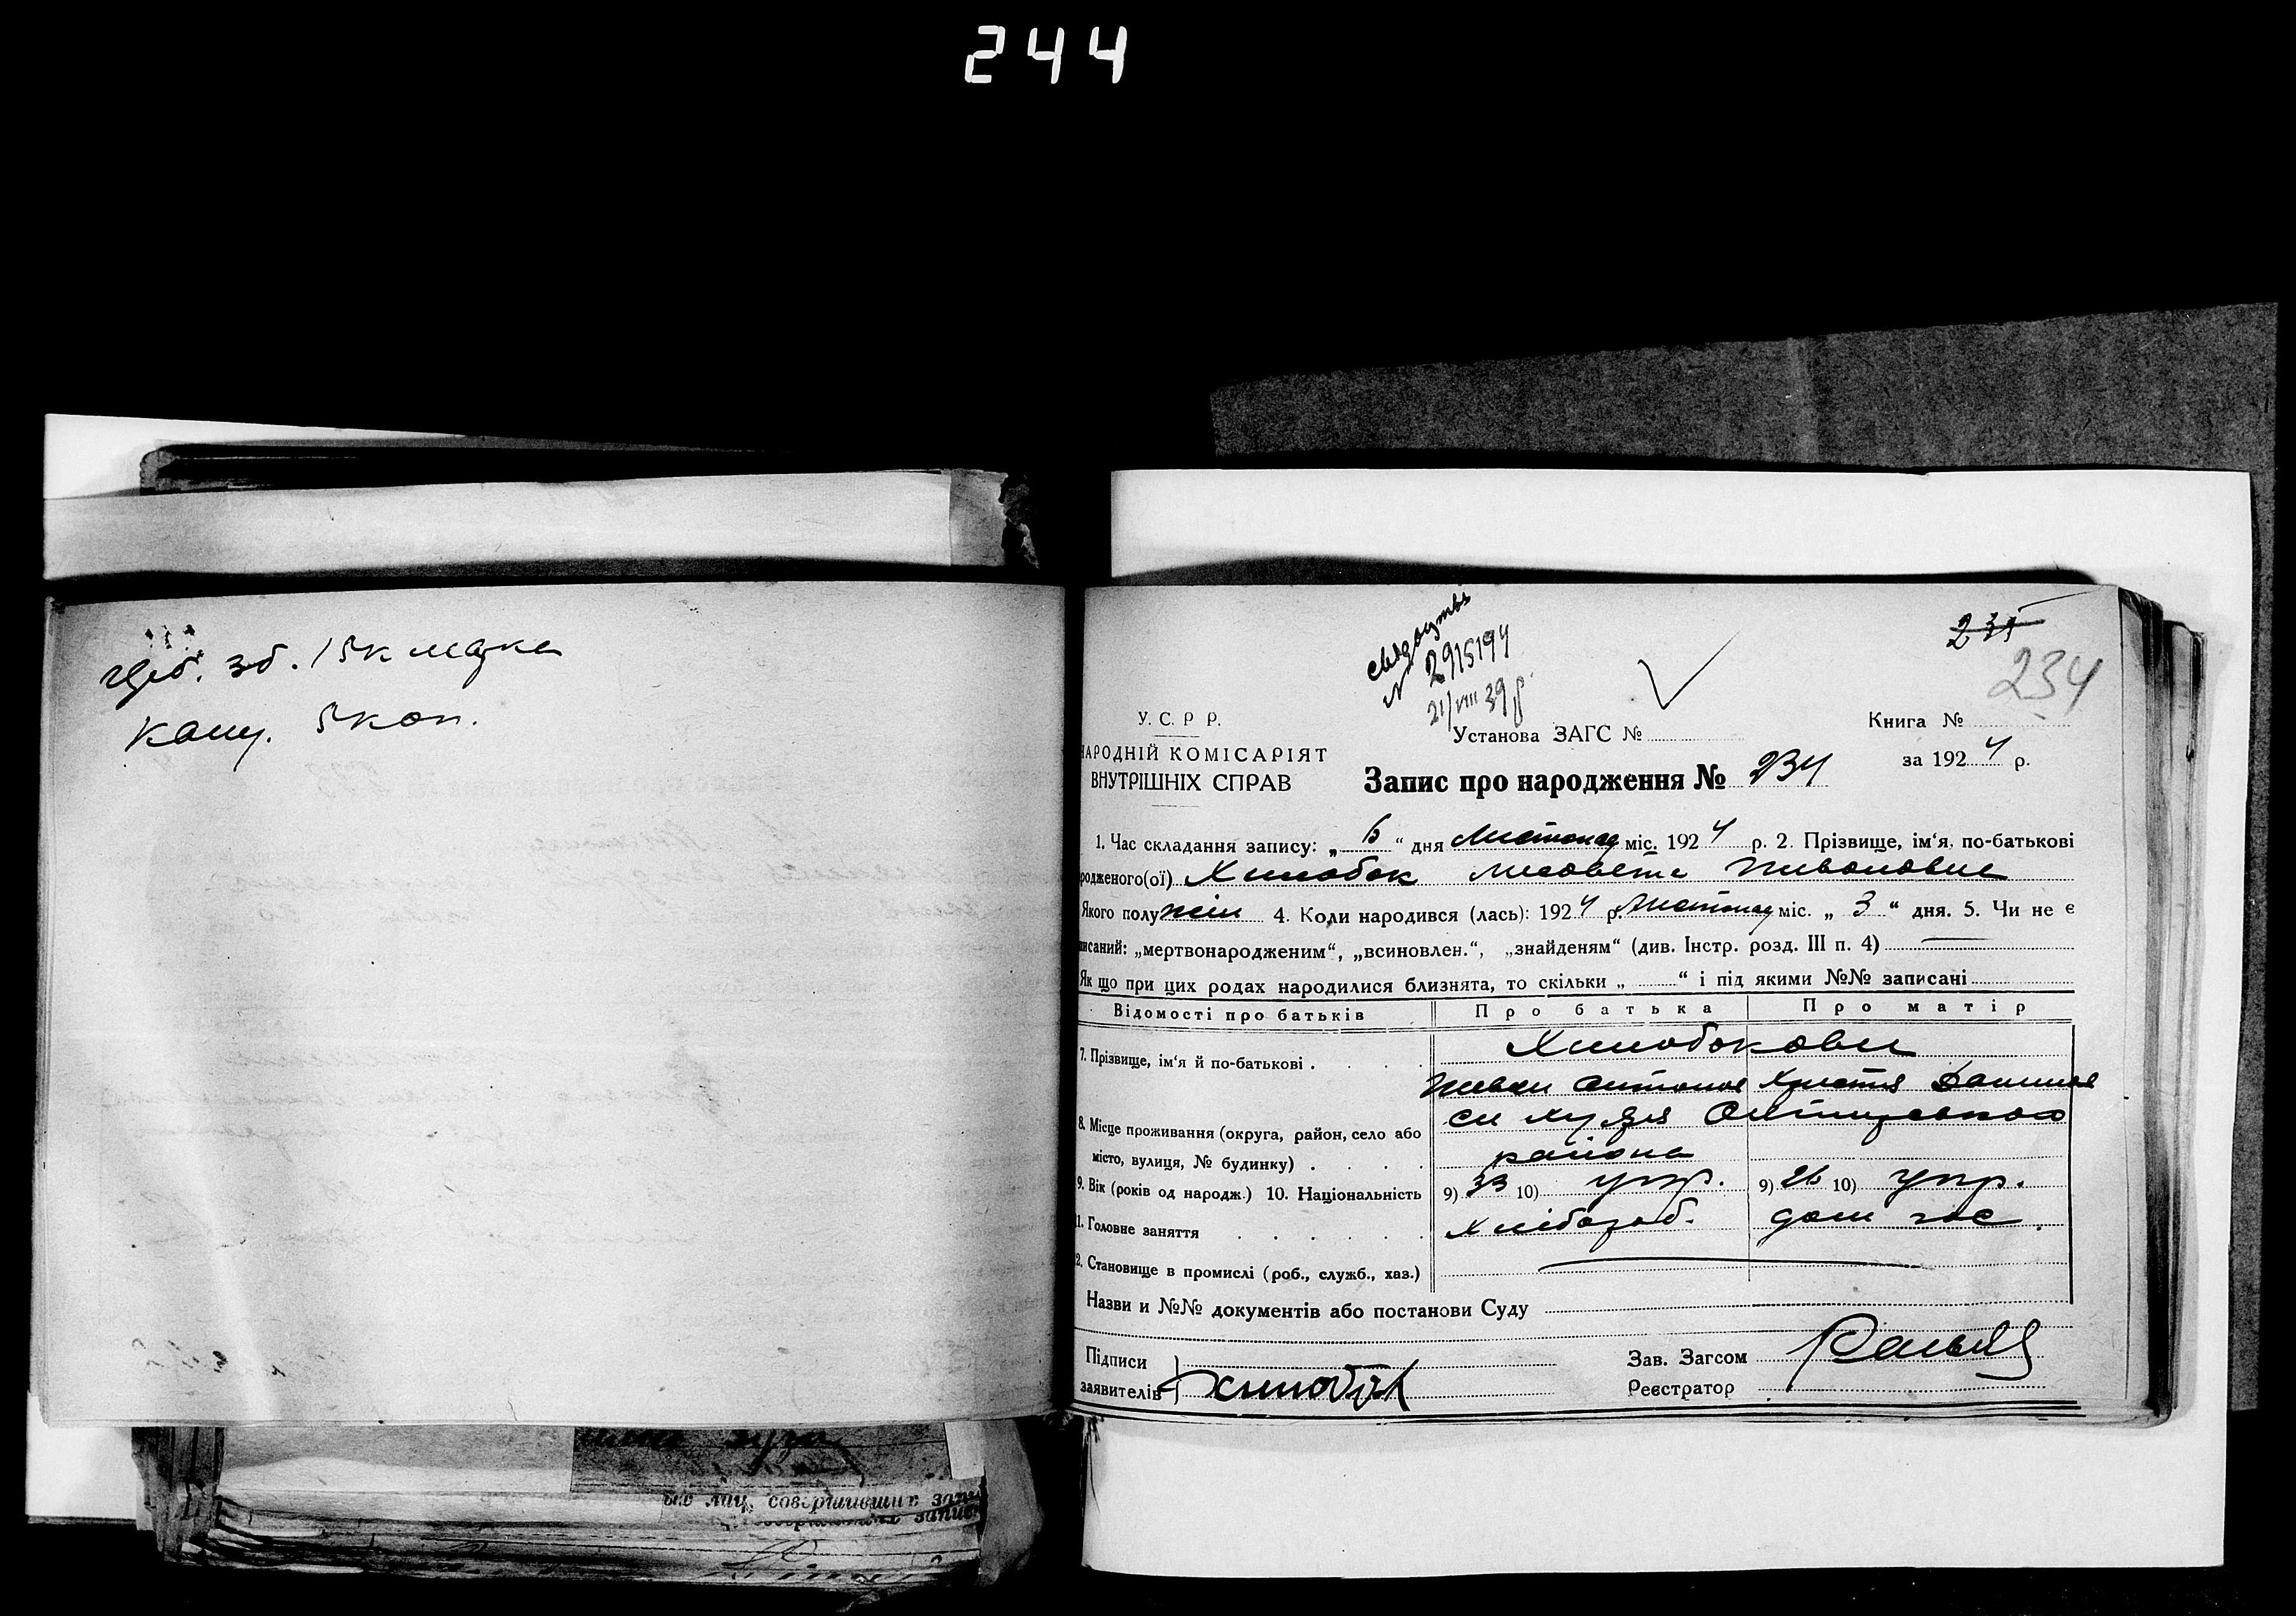 244
зб. 15к марка
канц. 5 коп.
свідоцтво
№ 2915194
21/VIII 39 р.
235
234
У. С. Р Р.
НАРОДНІЙ КОМІСАРІЯТ
ВНУТРІШНІХ СПРАВ
Установа ЗАГС №
Книга №
за 1924 р.
Запис про народження № 234
1. Час складання запису: „ 6 “ дня Листопад міс. 1924 р. 2. Прізвище, ім‘я, по-батькові
родженого(ої) Хилобок Лисовета Ивановна
Якого полу жін 4. Коли народився (лась): 1924 р. Листопад міс. „ 3 “ дня. 5. Чи не є
писаний: „мертвонародженим“, „всиновлен.“, „знайденям“ (див. Інстр. розд. III п. 4)
Як що при цих родах народилися близнята, то скільки „ “ і під якими №№ записані
Відомості про батьків Про батька Про матір
7. Прізвище, ім‘я й по-батькові . . . . Хилобокови
Иван Антонов Христя Данилов
8. Місце проживання (округа, район, село або
місто, вулиця, № будинку) . . . . района
9. Вік (років од народж.) 10. Національність 9) 33 10) укр. 9) 26 10) укр.
11. Головне заняття . . . . . . Хлібороб. дом гос.
2. Становище в промислі (роб., служб., хаз.)
Назви и №№ документів або постанови Суду
Підписи
заявителів Хилобок
Зав. Загсом
Реєстратор
лиц, совершивших запи